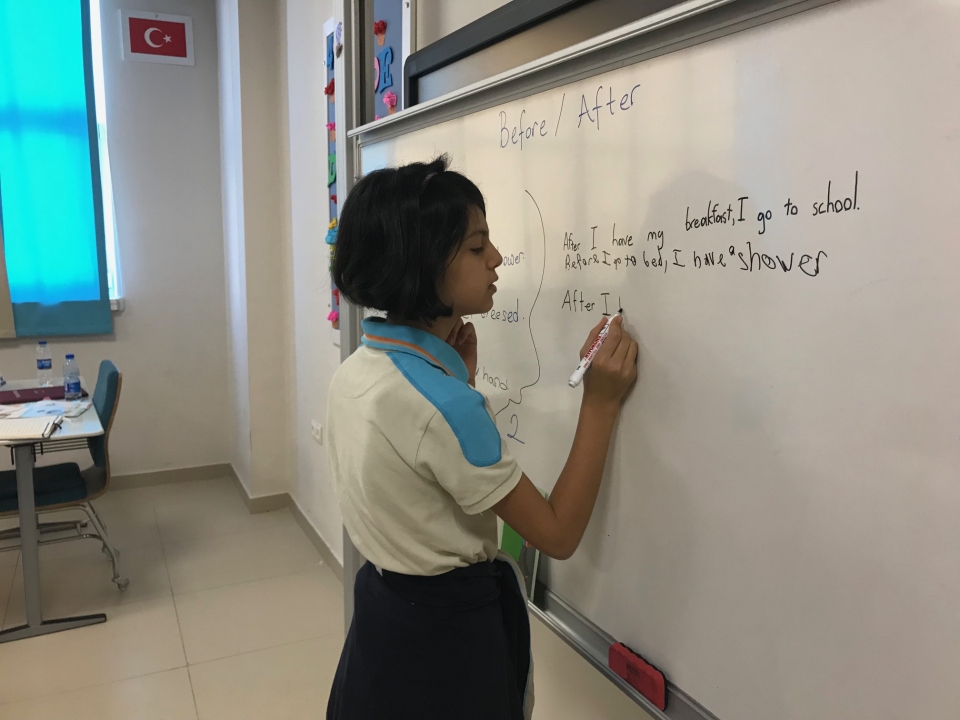 Before / After
After I have my breakfast, I go to school.
Before I go to bed, I have a shower
After I
hand
2